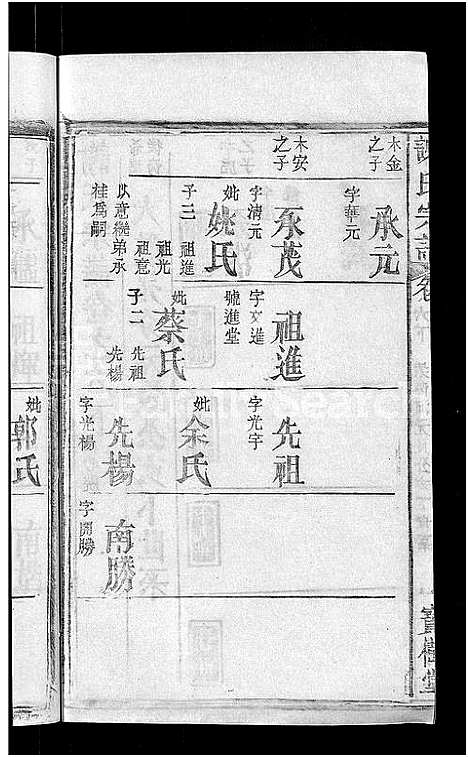 木金
之子
承元
字華元
木安
之子
承茂
字清元
妣
姚氏
子三
祖進
祖光
祖意
以意繼弟承
桂為嗣
祖進
字文進
號進堂
妣
蔡氏
子二
先祖
先楊
先祖
字光宇
妣
余氏
先楊
字光楊
南勝
字開勝
氏宗譜
卷
寶樹堂
祖輝
郭氏